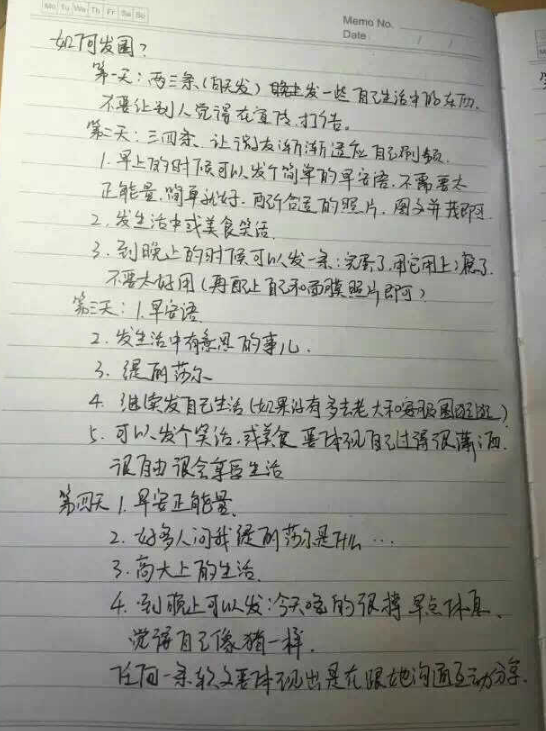 Mo Tu We Th Fr Sa Su
Memo No.
Date / /
如何发圈？
第一天：两三条（白天发）晚上发一些自己生活中的东西.
不要让别人觉得在宣传.打广告。
第二天：三四条 让朋友渐渐适应自己刷频.
1.早上的时候可以发个简单的早安语.不需要太
正能量.简单就好.配个合适的照片.图文并茂即可.
2.发生活中或美食笑话.
3.到晚上的时候可以发一条：完蛋了.用它用上瘾了.
不要太好用（再配上自己和面膜照片即可）
第三天：1.早安语
2.发生活中有意思的事儿.
3.缇丽莎尔
4.继续发自己生活（如果没有多去老大和客服圈逛逛）
5.可以发个笑话.或美食 要体现自己过得很潇洒.
很自由 很会享受生活
第四天 1.早安正能量.
2.好多人问我缇丽莎尔是什么…
3.高大上的生活.
4.到晚上可以发：今天吃的很撑 早点休息.
觉得自己像猪一样.
任何一条软文要体现出是在跟她沟通互动分享.